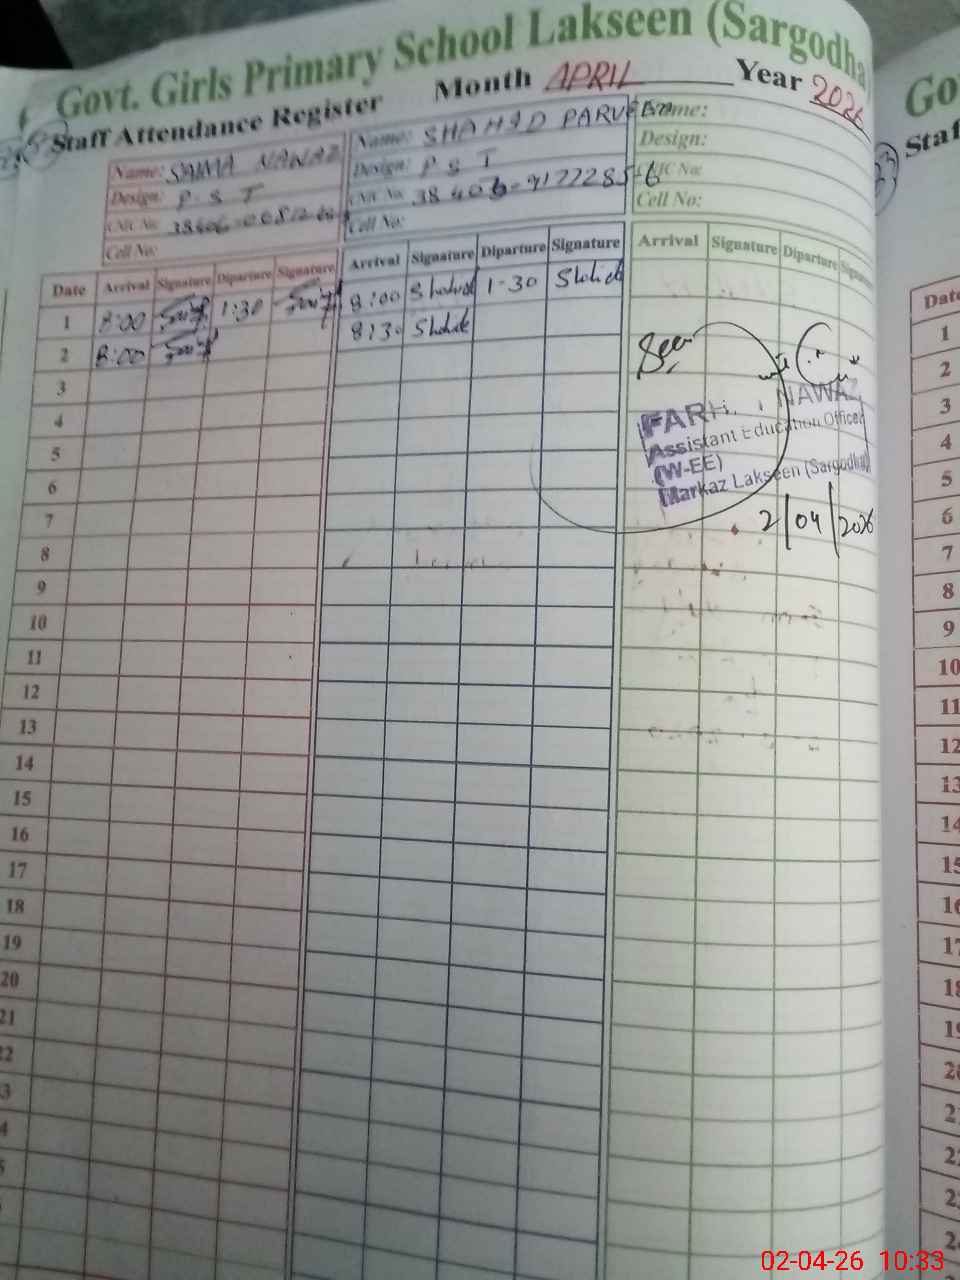 Govt. Girls Primary School Lakseen (Sargodha)
Staff Attendance Register Month APRIL Year 2026
Name: SAIMA NAWAZ
Design: P.S T
CNIC No:
Cell No:
Name: SHAHID PARVEEN
Design: P S T
CNIC No. 38406-9177285-6
Cell No:
Name:
Design:
CNIC No:
Cell No:
Date Arrival Signature Diparture Signature Arrival Signature Diparture Signature Arrival Signature Diparture
1 8:00 1:30 8:00 Shahid 1-30 Shahid
2 8:00 8:30 Shahid
3
4
5
6
7
8
9
10
11
12
13
14
15
16
17
18
19
20
21
22
Seen
NAWAZ
Assistant Education Officer
(W-EE)
Markaz Lakseen (Sargodha)
2/04/2026
Date
1
2
3
4
5
6
7
8
9
10
11
12
13
14
15
16
17
18
19
02-04-26 10:33